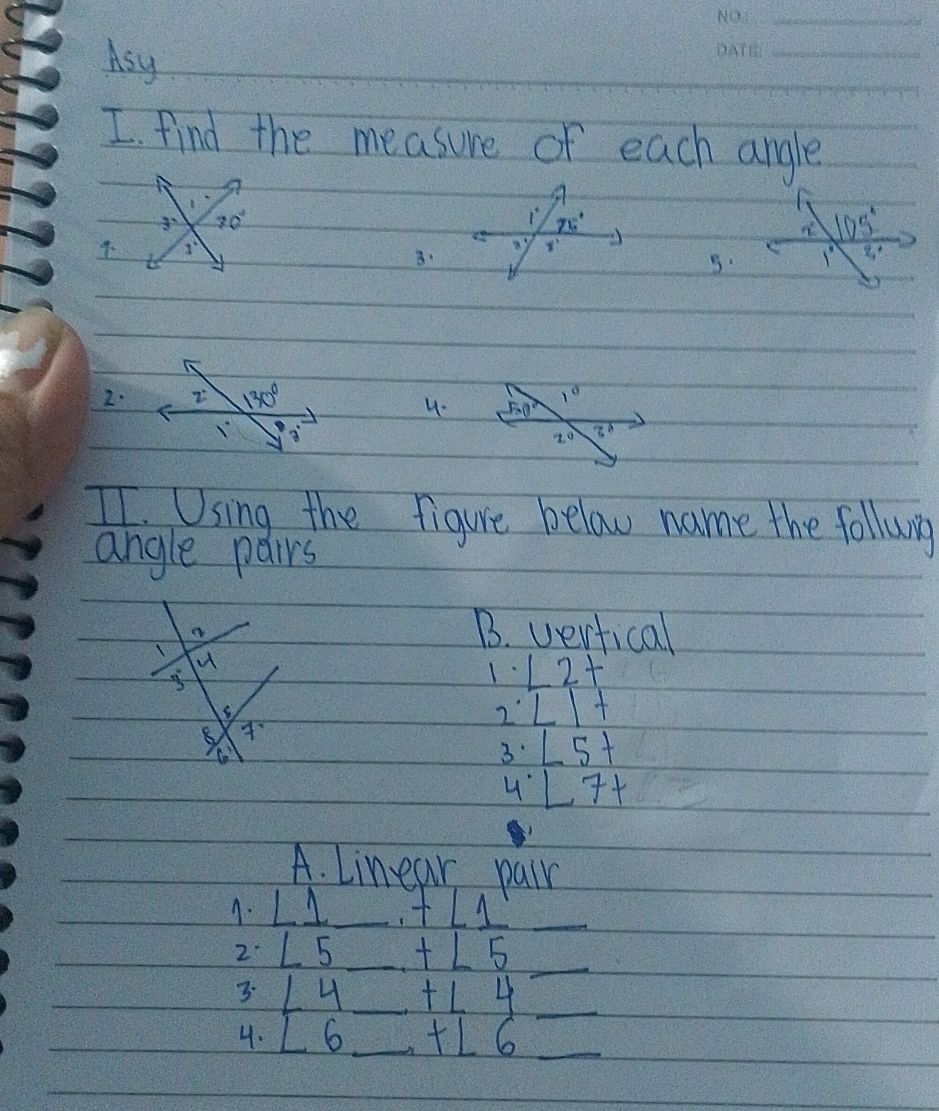 NO.:
DATE:
Asy
I. find the measure of each angle
1. 1° 3° 70° 2°
3. 1° 75° 2° 3°
5. 2° 105° 1° 3°
2. 2° 130° 1° 3°
4. 50° 1° 2° 3°
II. Using the figure below name the follwing
angle pairs
1 2 4 3
5 8 7 6
B. vertical
1. L 2 +
2. L 1 +
3. L 5 +
4. L 7 +
A. Linear pair
1. L 1 __. + L 1 __
2. L 5 __ + L 5 __
3. L 4 __ + L 4 __
4. L 6 __. + L 6 __